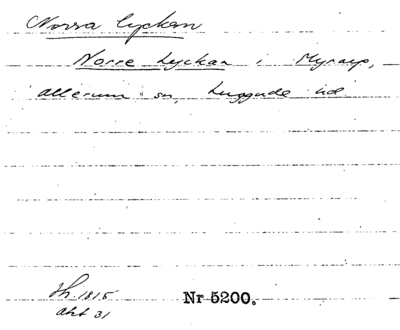 Norra lyckan
Norre Lyckan i Myrarp,
Allerum sn, Luggude hd
Jh. 1815
akt 31
Nr 5200.